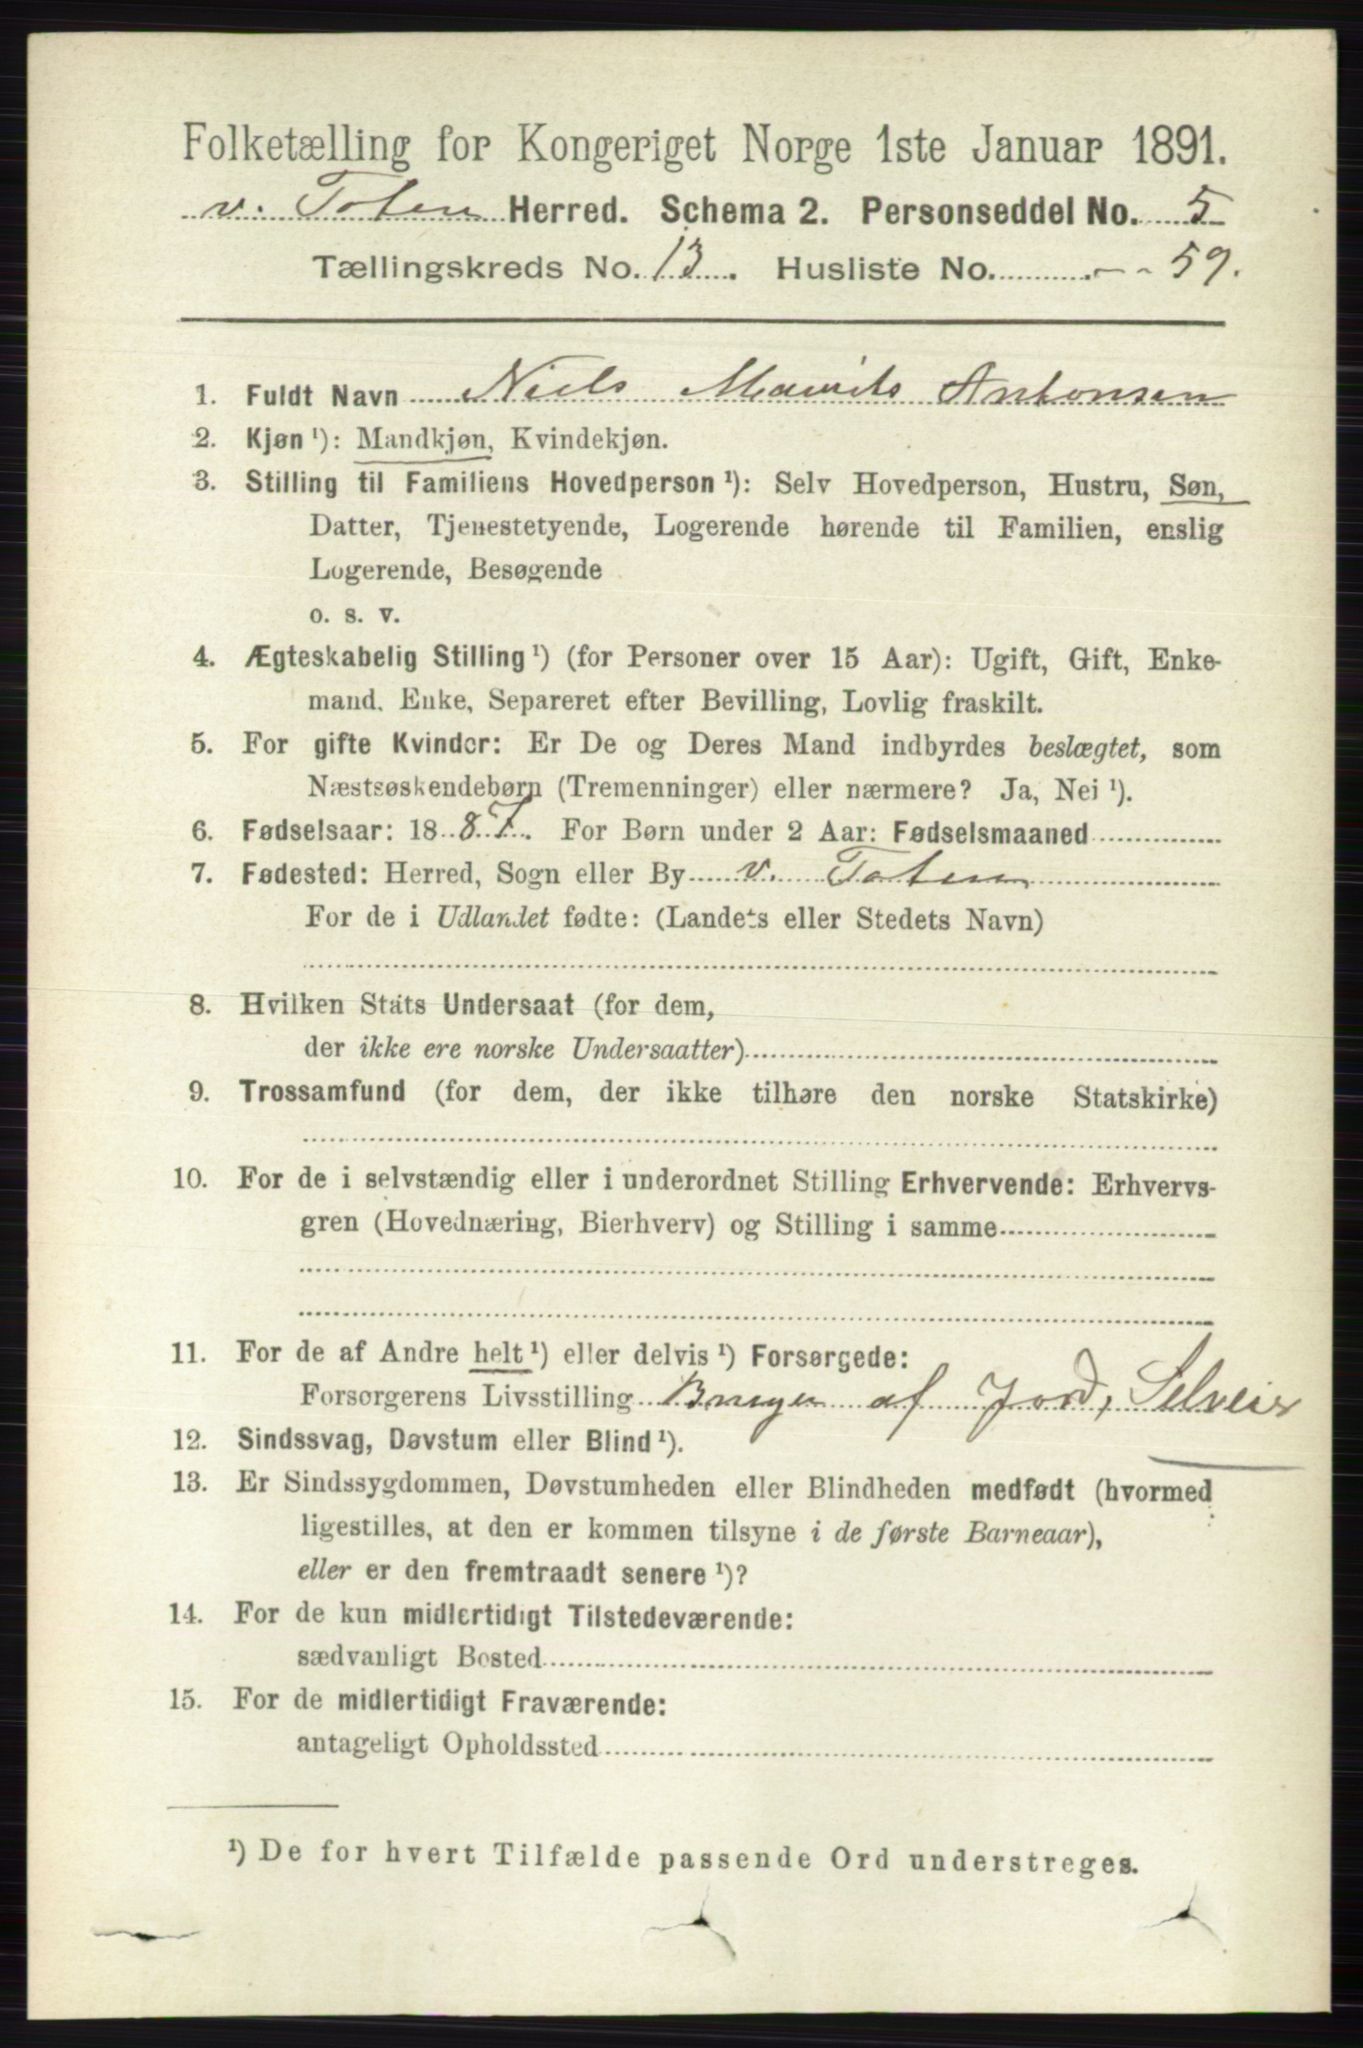 Folketælling for Kongeriget Norge 1ste Januar 1891.
v. Toten Herred. Schema 2. Personseddel No. 5
Tællingskreds No. 13. Husliste No. 59.
1. Fuldt Navn Niels Maurits Antonsen
2. Kjøn ¹): Mandkjøn, Kvindekjøn.
3. Stilling til Familiens Hovedperson ¹): Selv Hovedperson, Hustru, Søn,
Datter, Tjenestetyende, Logerende hørende til Familien, enslig
Logerende, Besøgende
o. s. v.
4. Ægteskabelig Stilling ¹) (for Personer over 15 Aar): Ugift, Gift, Enke-
mand, Enke, Separeret efter Bevilling, Lovlig fraskilt.
5. For gifte Kvinder: Er De og Deres Mand indbyrdes beslægtet, som
Næstsøskendebørn (Tremenninger) eller nærmere? Ja, Nei ¹).
6. Fødselsaar: 1887. For Børn under 2 Aar: Fødselsmaaned
7. Fødested: Herred, Sogn eller By v. Toten
For de i Udlandet fødte: (Landets eller Stedets Navn)
8. Hvilken Stats Undersaat (for dem,
der ikke ere norske Undersaatter)
9. Trossamfund (for dem, der ikke tilhøre den norske Statskirke)
10. For de i selvstændig eller i underordnet Stilling Erhvervende: Erhvervs-
gren (Hovednæring, Bierhverv) og Stilling i samme
11. For de af Andre helt ¹) eller delvis ¹) Forsørgede:
Forsørgerens Livsstilling Bruger af Jord, Selveier
12. Sindssvag, Døvstum eller Blind ¹).
13. Er Sindssygdommen, Døvstumheden eller Blindheden medfødt (hvormed
ligestilles, at den er kommen tilsyne i de første Barneaar),
eller er den fremtraadt senere ¹)?
14. For de kun midlertidigt Tilstedeværende:
sædvanligt Bosted
15. For de midlertidigt Fraværende:
antageligt Opholdssted
¹) De for hvert Tilfælde passende Ord understreges.